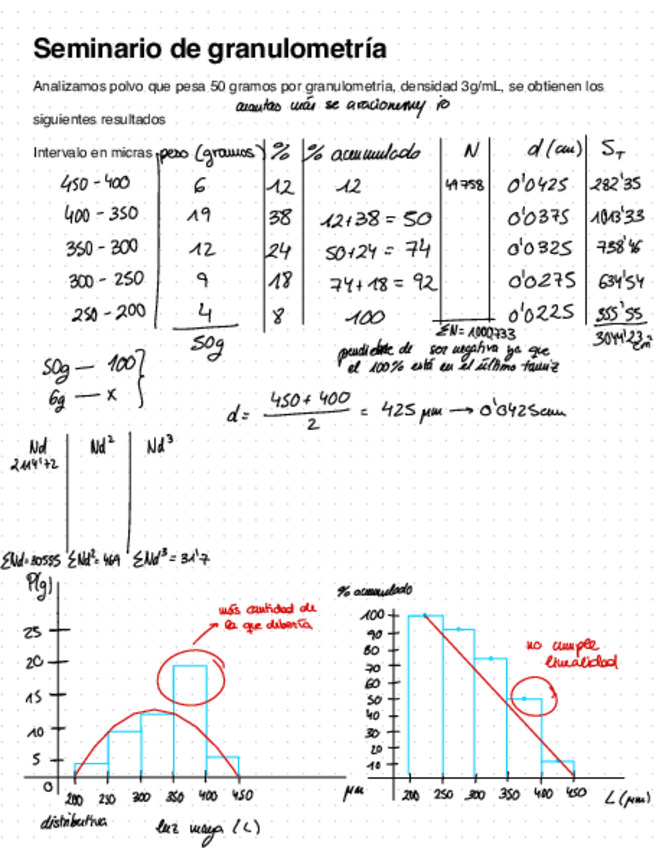 Seminario de granulometría
Analizamos polvo que pesa 50 gramos por granulometría, densidad 3g/mL, se obtienen los
cuantas más se aracionemy io
siguientes resultados
Intervalo en micras peso (gramos) % % acumulado N d (cm) S_T
450 - 400 6 12 12 49758 0'0425 282'35
400 - 350 19 38 12+38 = 50 0'0375 1013'33
350 - 300 12 24 50+24 = 74 0'0325 738'46
300 - 250 9 18 74+18 = 92 0'0275 654'54
250 - 200 4 8 100 0'0225 355'55
50g ΣN = 1000733 3044'23 cm²
pendiente de ser negativa ya que
el 100% está en el último tamiz
50g — 100
6g — x
d = (450 + 400) / 2 = 425 μm → 0'0425cm
Nd Nd² Nd³
2114'72
ΣNd=30555 ΣNd²= 969 ΣNd³ = 31'7
P(g)
más cantidad de
la que debería
25
20
15
10
5
0
200 250 300 350 400 450 μm
distributiva
luz maya (L)
% acumulado
no cumple
linealidad
100
90
80
70
60
50
40
30
20
10
200 250 300 350 400 450 L (μm)